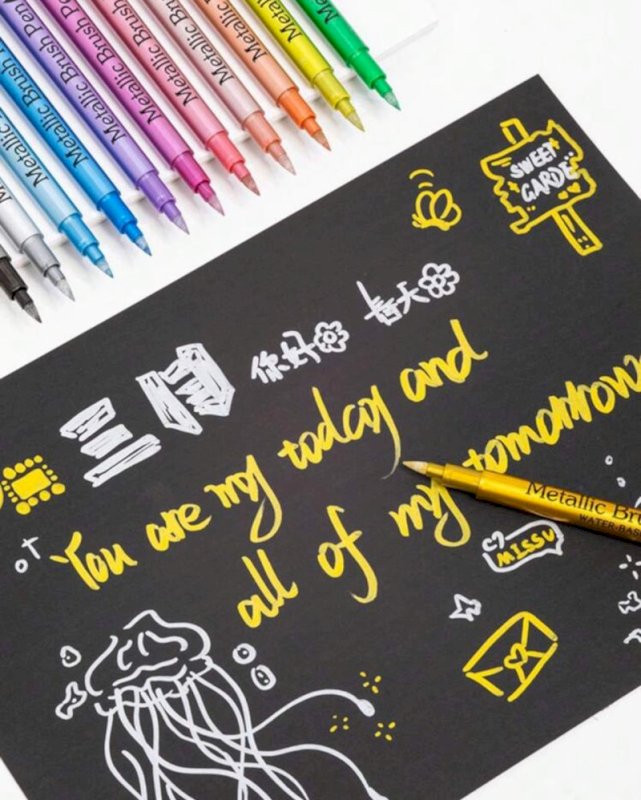 Metallic Brush
Metallic Brush Pen
Metallic Brush Pen
Metallic Brush
Metallic Brush
Metallic Brush
Metallic Brush
Metallic
Metallic
Metallic
SWEET
GARDE
你好
三月
You are my today and
all of my tomorrow
Metallic Bru
WATER BAS
MISS U